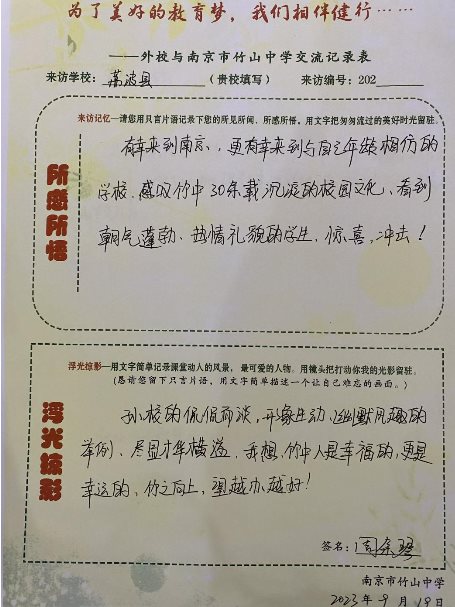 为了美好的教育梦，我们相伴健行……
——外校与南京市竹山中学交流记录表
来访学校：萧波县（贵校填写） 来访编号：202
来访记忆—请您用只言片语记录下您的所见所闻、所感所悟，用文字把匆匆流过的美好时光留驻。
所感所悟
有幸来到南京，更有幸来到与自己年龄相仿的
学校，感叹竹中30余载沉淀的校园文化、看到
朝气蓬勃、热情礼貌的学生，惊喜，冲击！
浮光掠影—用文字简单记录课堂动人的风景，最可爱的人物。用镜头把打动你我的光影留驻。
（恳请您留下只言片语，用文字简单描述一个让自己难忘的画面。）
浮光掠影
孙校的侃侃而谈，形象生动、幽默风趣的
举例、尽显才华横溢，我想，竹中人是幸福的，更是
幸运的，竹之向上，越办越好！
签名：
南京市竹山中学
2023年9月19日